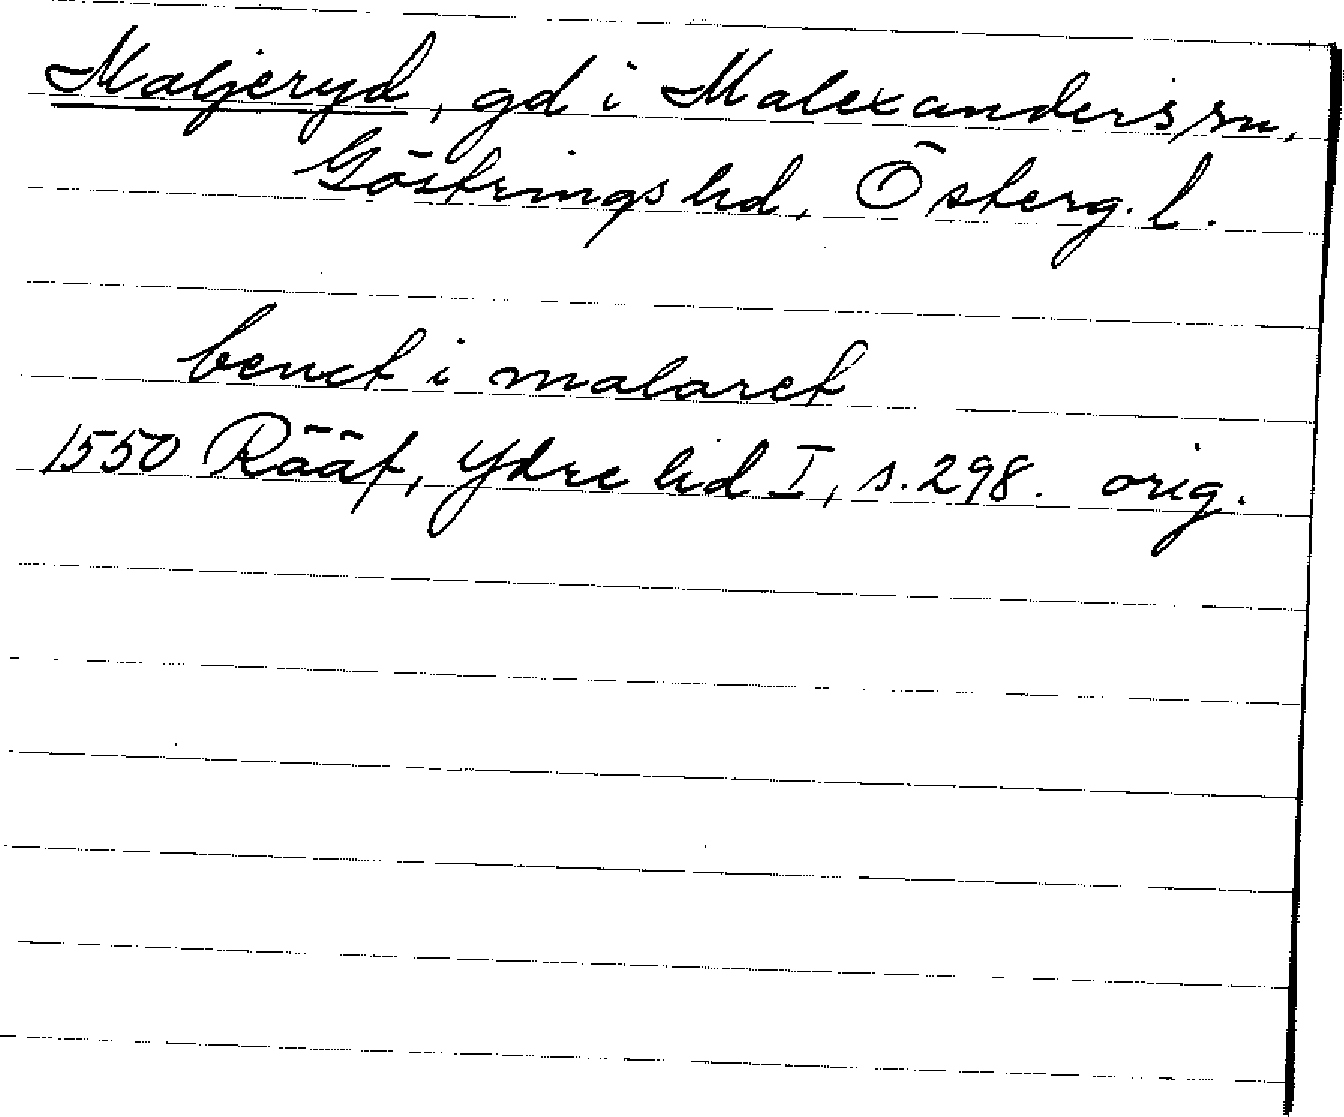 Maljeryd, gd i Malexanders sn,
Göstrings hd, Österg. l.
benct i malaret
1550 Rääf, Ydre hd I, s. 298. orig.